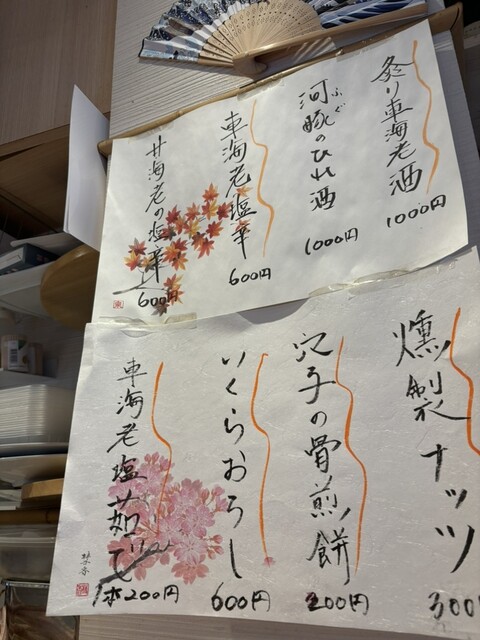 炙り車海老酒
1000円
河豚のひれ酒
ふぐ
1000円
車海老塩辛
600円
甘海老の塩辛
600円
燻製ナッツ
300
穴子の骨煎餅
200円
いくらおろし
600円
車海老塩茹で
1本200円